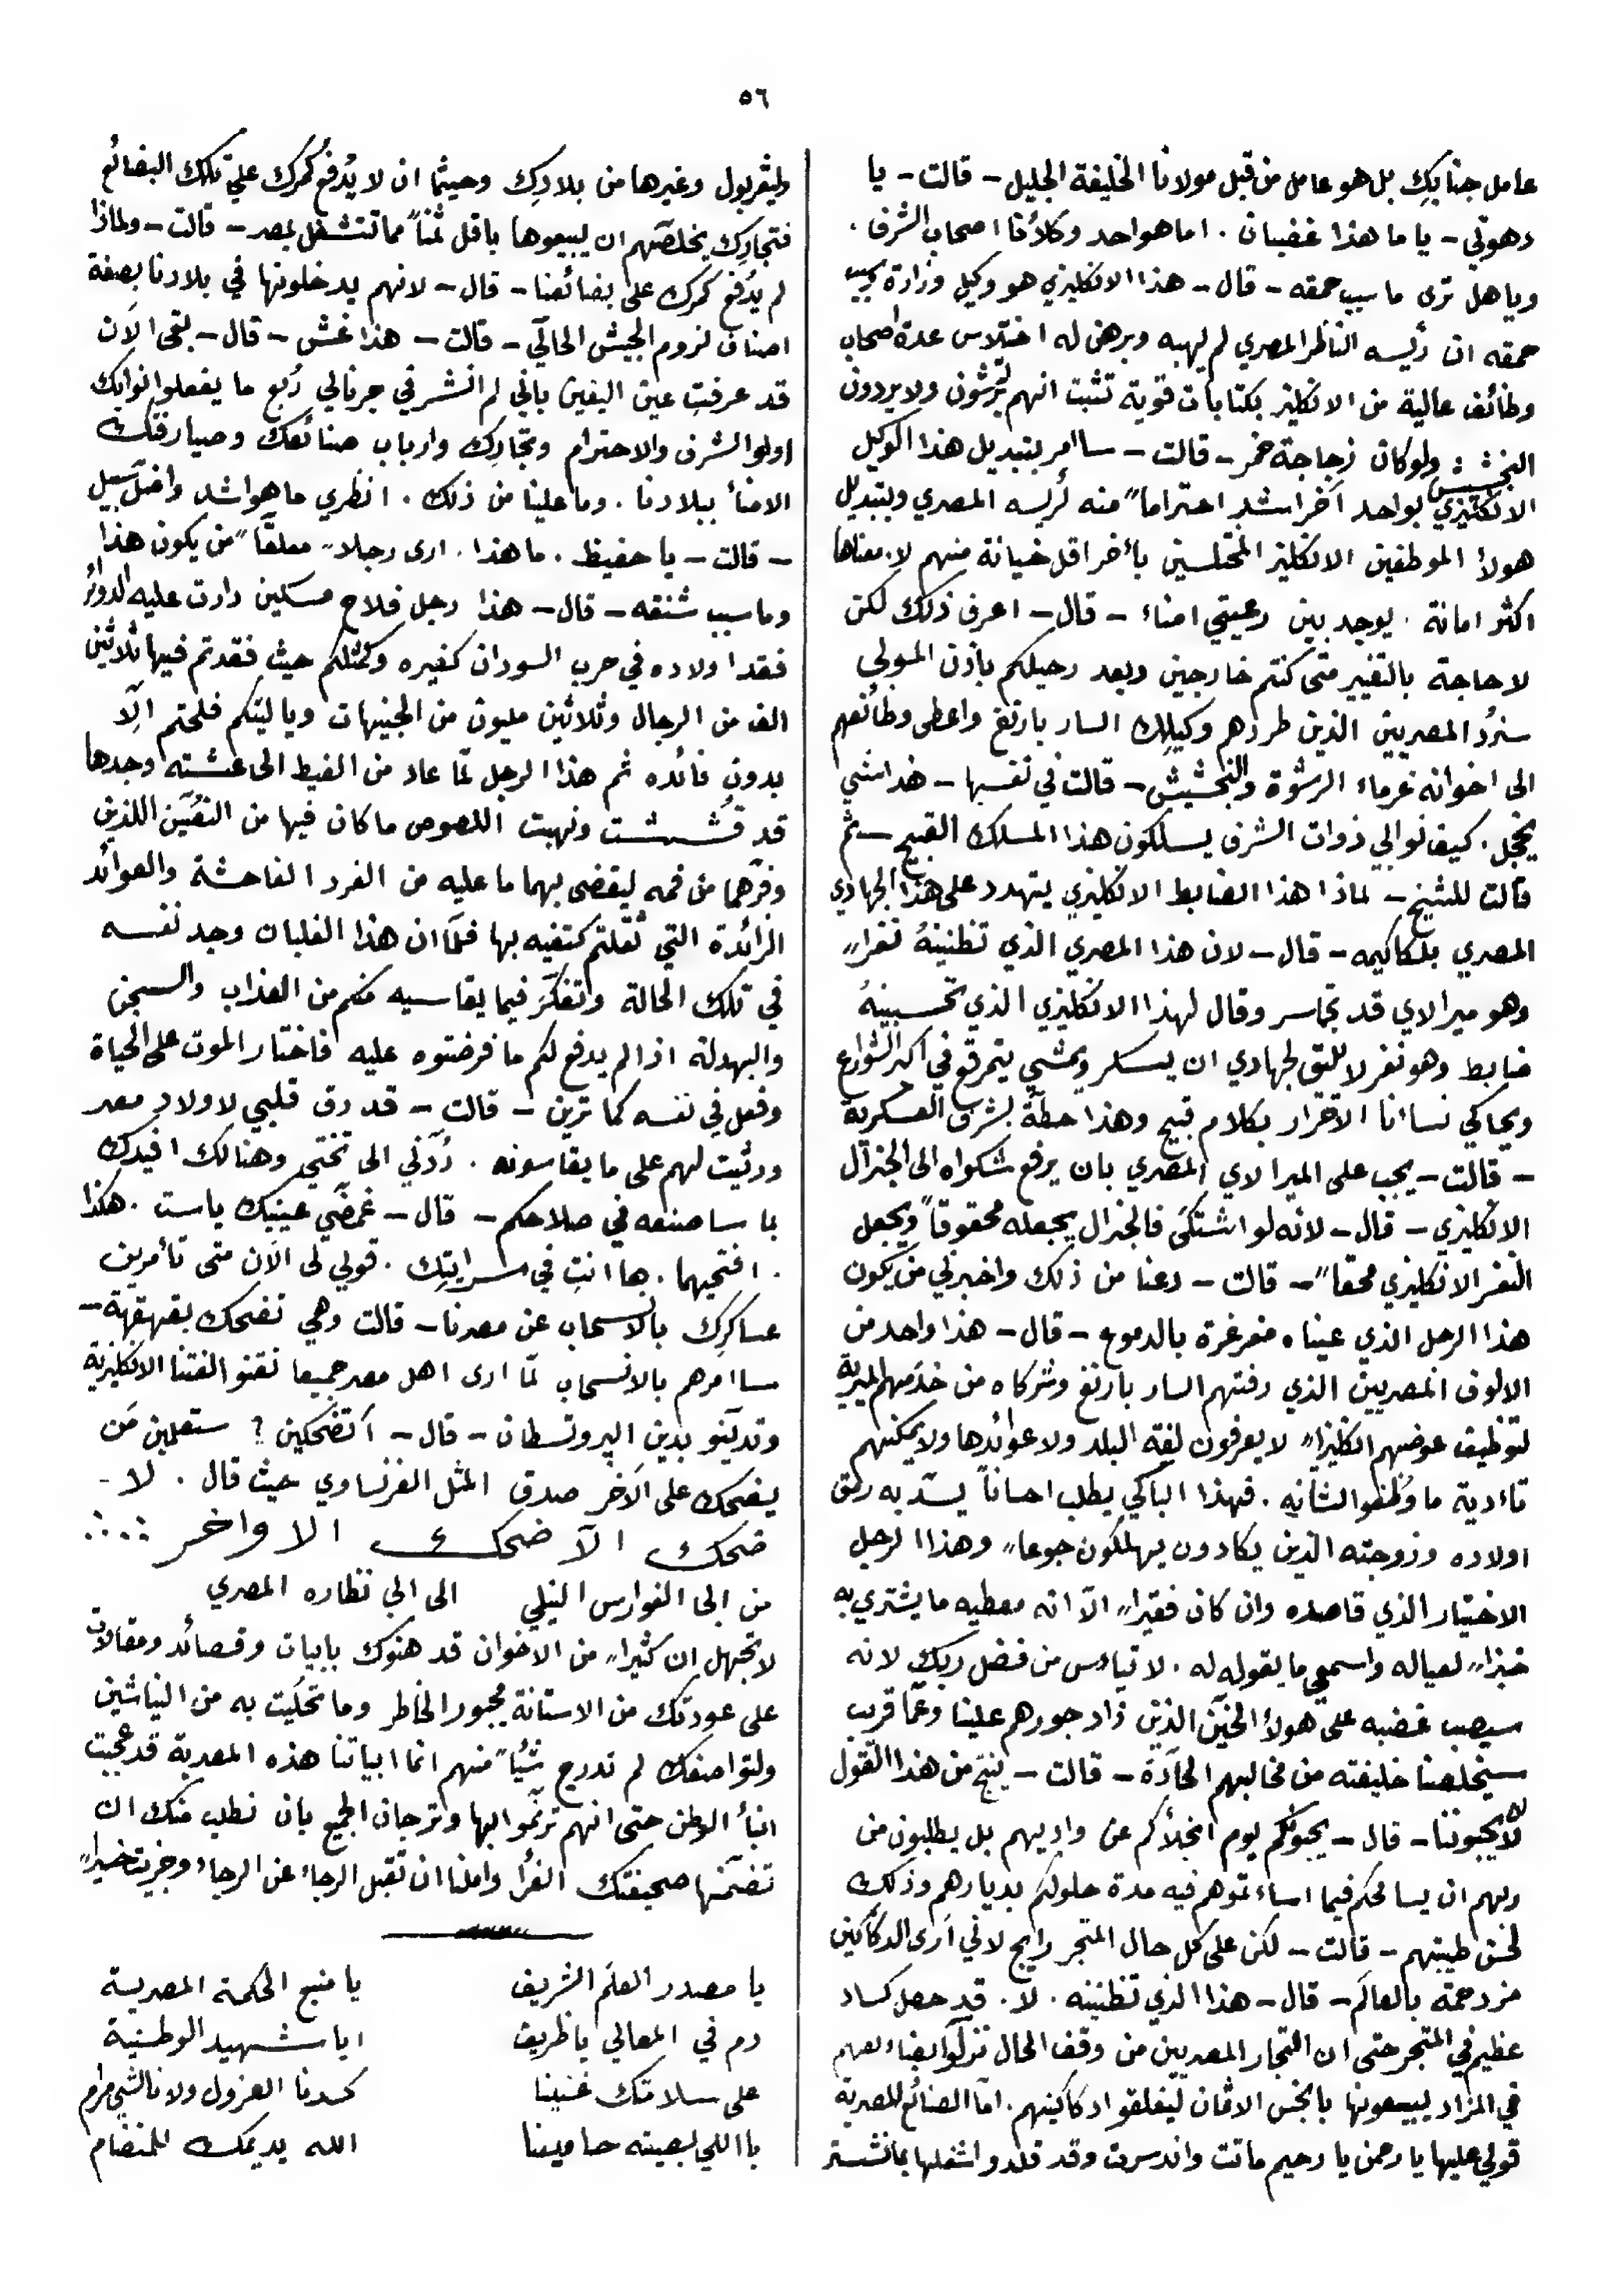 ٥٦
عامل جنابكِ بل هو عامل من قبل مولانا الخليفة الجليل – قالت – يا
دهوتي – يا ما هذا غضبان . اما هو احد وكلاؤنا اصحاب الشرف .
ويا هل ترى ما سبب حمقه – قال – هذا الانكليزي هو وكيل وزارة سبب
حمقه ان رئيسه الناظر المصري لم يهبه وبرهن له اختلاس عدة اصحاب
وظائف عالية من الانكليز بكتابات قوية تثبت انهم يرتشون ولا يردون
البخشيش ولو كان زجاجة خمر – قالت – سا امر بتبديل هذا الوكيل
الانكليزي بواحد آخر اشد احتراماً منه لرئيسه المصري وبتبديل
هولاء الموظفين الانكليز المختلسين باخر اقل خيانة منهم لا معناها
اكثر امانة . يوجد بين رعيتي امناء – قال – اعرف ذلك لكن
لا حاجة بالتغيير متى كنتم خارجين وبعد رحيلكم باذن المولى
سنردُ المصريين الذين طردهم وكيلك السار بارنغ واعطى وظائفهم
الى اخوانه غرماء الرشوة والبخشيش – قالت في نفسها – هذا شي
يخجل . كيف نوابي ذوات الشرف يسلكون هذا المسلك القبيح – ثم
قالت للشيخ – لماذا هذا الضابط الانكليزي يتهدد على هذا الجهادي
المصري بلكاكيمه – قال – لان هذا المصري الذي تظنينهُ نفراً
وهو ميرالاي قد تجاسر وقال لهذا الانكليزي الذي تحسبينهُ
ضابط وهو نفر لا يليق لجهادي ان يسكر ويمشي يتمرقع في اكبر الشوارع
ويحاكي نسائنا الاحرار بكلام قبيح وهذا حطةً بشرف العسكرية
– قالت – يجب على الميرالاي المصري بان يرفع شكواه الى الجنرال
الانكليزي – قال – لانه لو اشتكى فالجنرال يجعله محقوقاً ويجعل
النفر الانكليزي محقاً – قالت – دعنا من ذلك واخبرني من يكون
هذا الرجل الذي عيناه مغرغرة بالدموع – قال – هذا واحد من
الالوف المصريين الذي رفتهم السار بارنغ وشركاه من خدمهم الميرية
لتوظيف عوضهم انكليزا لا يعرفون لغة البلد ولا عوائدها ولا يمكنهم
تاءدية ما وُظفوا لشانه . فهذا الباكي يطلب احساناً يسدّ به رمق
اولاده وزوجته الذين يكادون يهلكون جوعاً وهذا الرجل
الاختيار الذي قاصده وان كان فقيراً الّا انه معطيه ما يشتري به
خبزاً لعياله واسمعي ما يقوله له . لا تيائس من فضل ربك لانه
سيصب غضبه على هولاء الذين زاد جورهم علينا وعمّا قريب
سيخلصنا خليفته من مخالبهم الحآدة – قالت – ينتج من هذا القول
انهم لا يحبوننا – قال – يحبونكم يوم انجلاؤكم عن واديهم بل يطلبون من
ربهم ان يسامحكم فيما اساءتموهم فيه مدة حلولكم بديارهم وذلك
لحسن طيبتهم – قالت – لكن على كل حال المتجر رايج لاني ارى الدكاكين
مزدحمة بالعالَم – قال – هذا الذي تظنينه . لا . قد حصل كساد
عظيم في المتجر حتى ان التجار المصريين من وقف الحال نزلّوا بضائعهم
في المزاد ليبيعونها بابخس الاثمان ليغلقوا دكاكينهم . امّا الصنائع المصرية
قولي عليها يا رحمن يا رحيم ماتت واندرست وقد قلدوا شغلها بمانشستر
وليڤربول وغيرها من بلادك وحيثما ان لا يُدفع كمرك على تلك البضائع
فتجاركِ يخلصّهم ان يبيعوها باقل ثمناً مما تنشغل بمصر – قالت – ولماذا
لم يُدفع كمرك على بضائعنا – قال – لانهم يدخلونها في بلادنا بصفة
اصناف لزوم الجيش الحآلي – قالت – هذا غش – قال – بقى الآن
قد عرفتِ عين اليقين باني لم انشر في جرنالي رُبع ما يفعلوا نوابك
اولو الشرف والاحترام وتجاركِ وارباب صنائعك وصيارفتك
الامناء ببلادنا . وما علينا من ذلك . انظري ما هو اشد واضلّ سبيل
– قالت – يا حفيظ . ما هذا . ارى رجلاً معلقاً من يكون هذا
وما سبب شنقه – قال – هذا رجل فلاح مسكين دارت عليه الدوائر
فقد اولاده في حرب السودان كغيره وكمثلكم حيث فقدتم فيها ثلاثين
الف من الرجال وثلاثين مليون من الجنيهات ويا ليتكم فلحتم الّا
بدون فائده ثم هذا الرجل لمّا عاد من الغيط الى عشته وجدها
قد قُشت ونهبت اللصوص ما كان فيها من اللذين
وفرّهما من فمه ليقضى بهما ما عليه من الفرد الفاحشة والعوائد
الزائدة التي ثقّلتم كتفيه بها فلمّا ان هذا الغلبان وجد نفسه
في تلك الحالة واتفكّر فيما يقاسيه منكم من العذاب والسجن
والبهدلة اذا لم يدفع لكم ما فرضتوه عليه فاختار الموت على الحياة
وفعل في نفسه كما ترين – قالت – قد رق قلبي لاولاد مصر
ورثيت لهم على ما يقاسونه . رُدّني الى تختي وهنالك افيدك
بما ساصنعه في صلاحكم – قال – غمضّي عينيك ياست . هكذا
. افتحيهما . ها انتِ في سرايتك . قولي لى الآن متى تأمرين
عساكركِ بالانسحاب عن مصرنا – قالت وهي تضحك بقهقهة –
سا امرهم بالانسحاب لمّا ارى اهل مصر جميعا تقنو الفتنا الانكليزية
وتديّنو بدين البروتسطان – قال – اَتضحكين ؟ ستعلمين مَن
يضحك على الآخر صدق المثل الفرنساوي حيث قال . لا –
ضحك الآ ضحك الاواخر
من ابى الفوارس النيلي الى ابي نظاره المصري
لا تجهل ان كثيراً من الاخوان قد هنوك بابيات وقصائد ومقالات
على عودتك من الاستانة مجبور الخاطر وما تحلّيت به من النياشين
ولتواضعك لم تدرج شيئاً منهم انما ابياتنا هذه المصرية قد عجبت
ابناء الوطن حتى انهم ترنمّوا بها وترجان الجميع بان نطلب منك ان
تضمّنها صحيفتك الغرا واملنا ان تقبل الرجاء عن الرجاء وجزيت خيراً
يا مصدر العلَم الشريف يا منبع الحكمة المصرية
دم في المعالي يا ظريف ايا شهيد الوطنية
على سلامتك غنينا كدنا العزول ولا نالشي مرام
يا اللي لصيته حامينا الله يديمك للمنضام